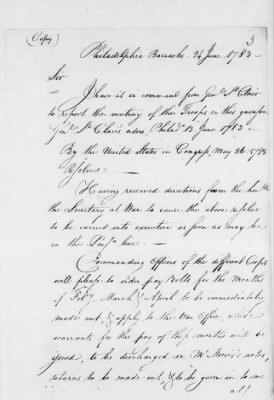 (Copy)
3
Philadelphia Barracks 24 June 1783—
Sir
I have it in command from Genl. St. Clair
to report the mutiny of the Troops in this garrison
Genl. St. Clairs orders, Philada. 13 June 1783—
By the United States in Congress, May 26. 1783
Resolved—
Having received directions from the honble.
the Secretary at War to cause the above resolve
to be carried into execution as soon as may be
in the line—
Commanding Officers of the different Corps
will please to order pay Rolls for the Months
of Feby. March & April to be immediately
made out, & apply to the War Office where
warrants for the pay of those months will be
issued, to be discharged in Mr. Morris's notes,
returns to be made out, & to be given in to me
at